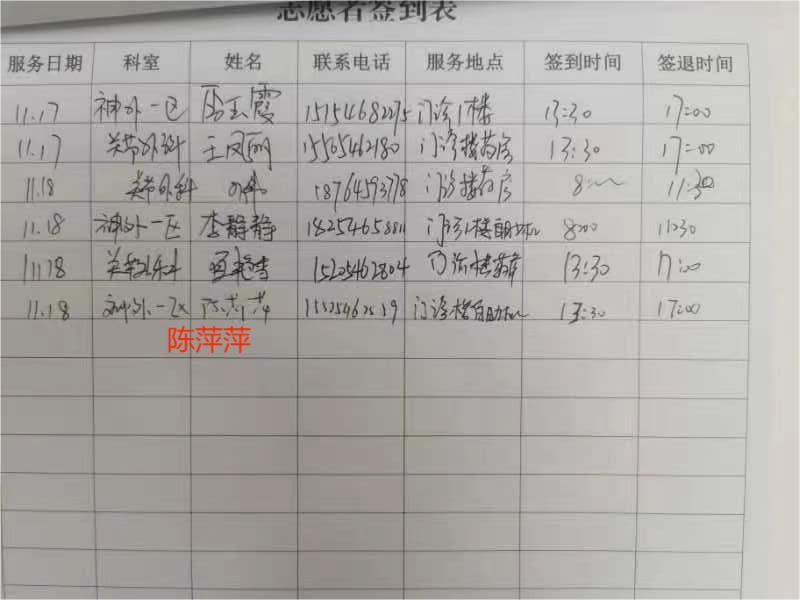 志愿者签到表
服务日期 科室 姓名 联系电话 服务地点 签到时间 签退时间
11.17 神外一区 玉霞 15154682275 门诊1楼 13:30 17:00
11.17 关节外科 王凤丽 15505462180 门诊楼药房 13:30 17:00
11.18 关节外科 18764593778 门诊楼药房 8:00 11:30
11.18 神外一区 李静静 门诊1楼自助机 8:00 11:30
11.18 关节外科 15205462804 门诊楼药房 13:30 17:00
11.18 神外一区 陈萍萍 门诊楼自助机 13:30 17:00
陈萍萍